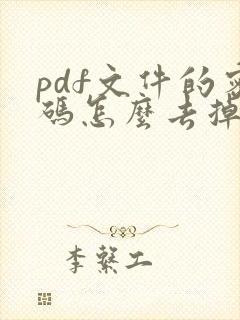 pdf文件的密
碼怎麼去掉
李繫工